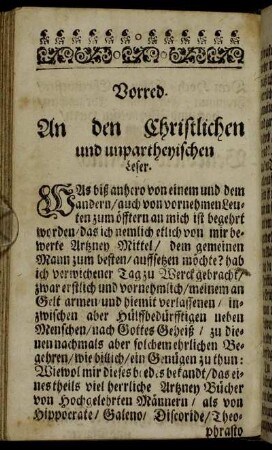 Vorred.
An den Christlichen
und unpartheyischen
Leser.
WAs biß anhero von einem und dem
andern/ auch von vornehmen Leu-
ten zum öfftern an mich ist begehrt
worden/ das ich nemlich etlich von mir be-
werte Artzney Mittel/ dem gemeinen
Mann zum besten/ auffsetzen möchte? hab
ich verwichener Tag zu Werck gebracht/
zwar erstlich und vornehmlich/ meinem an
Gelt armen/ und hiemit verlassenen/ in-
zwischen aber Hülffbedürfftigen neben
Menschen/ nach Gottes Geheiß/ zu die-
nen nachmals aber solchem ehrlichen Be-
gehren/ wie billich/ ein Genügen zu thun:
Wiewol mir dieses bekandt/ das ei-
nes theils viel herrliche Artzney Bücher
von Hochgelehrten Männern/ als von
Hippocrate/ Galeno/ Discoride/ Theo-
phrasto